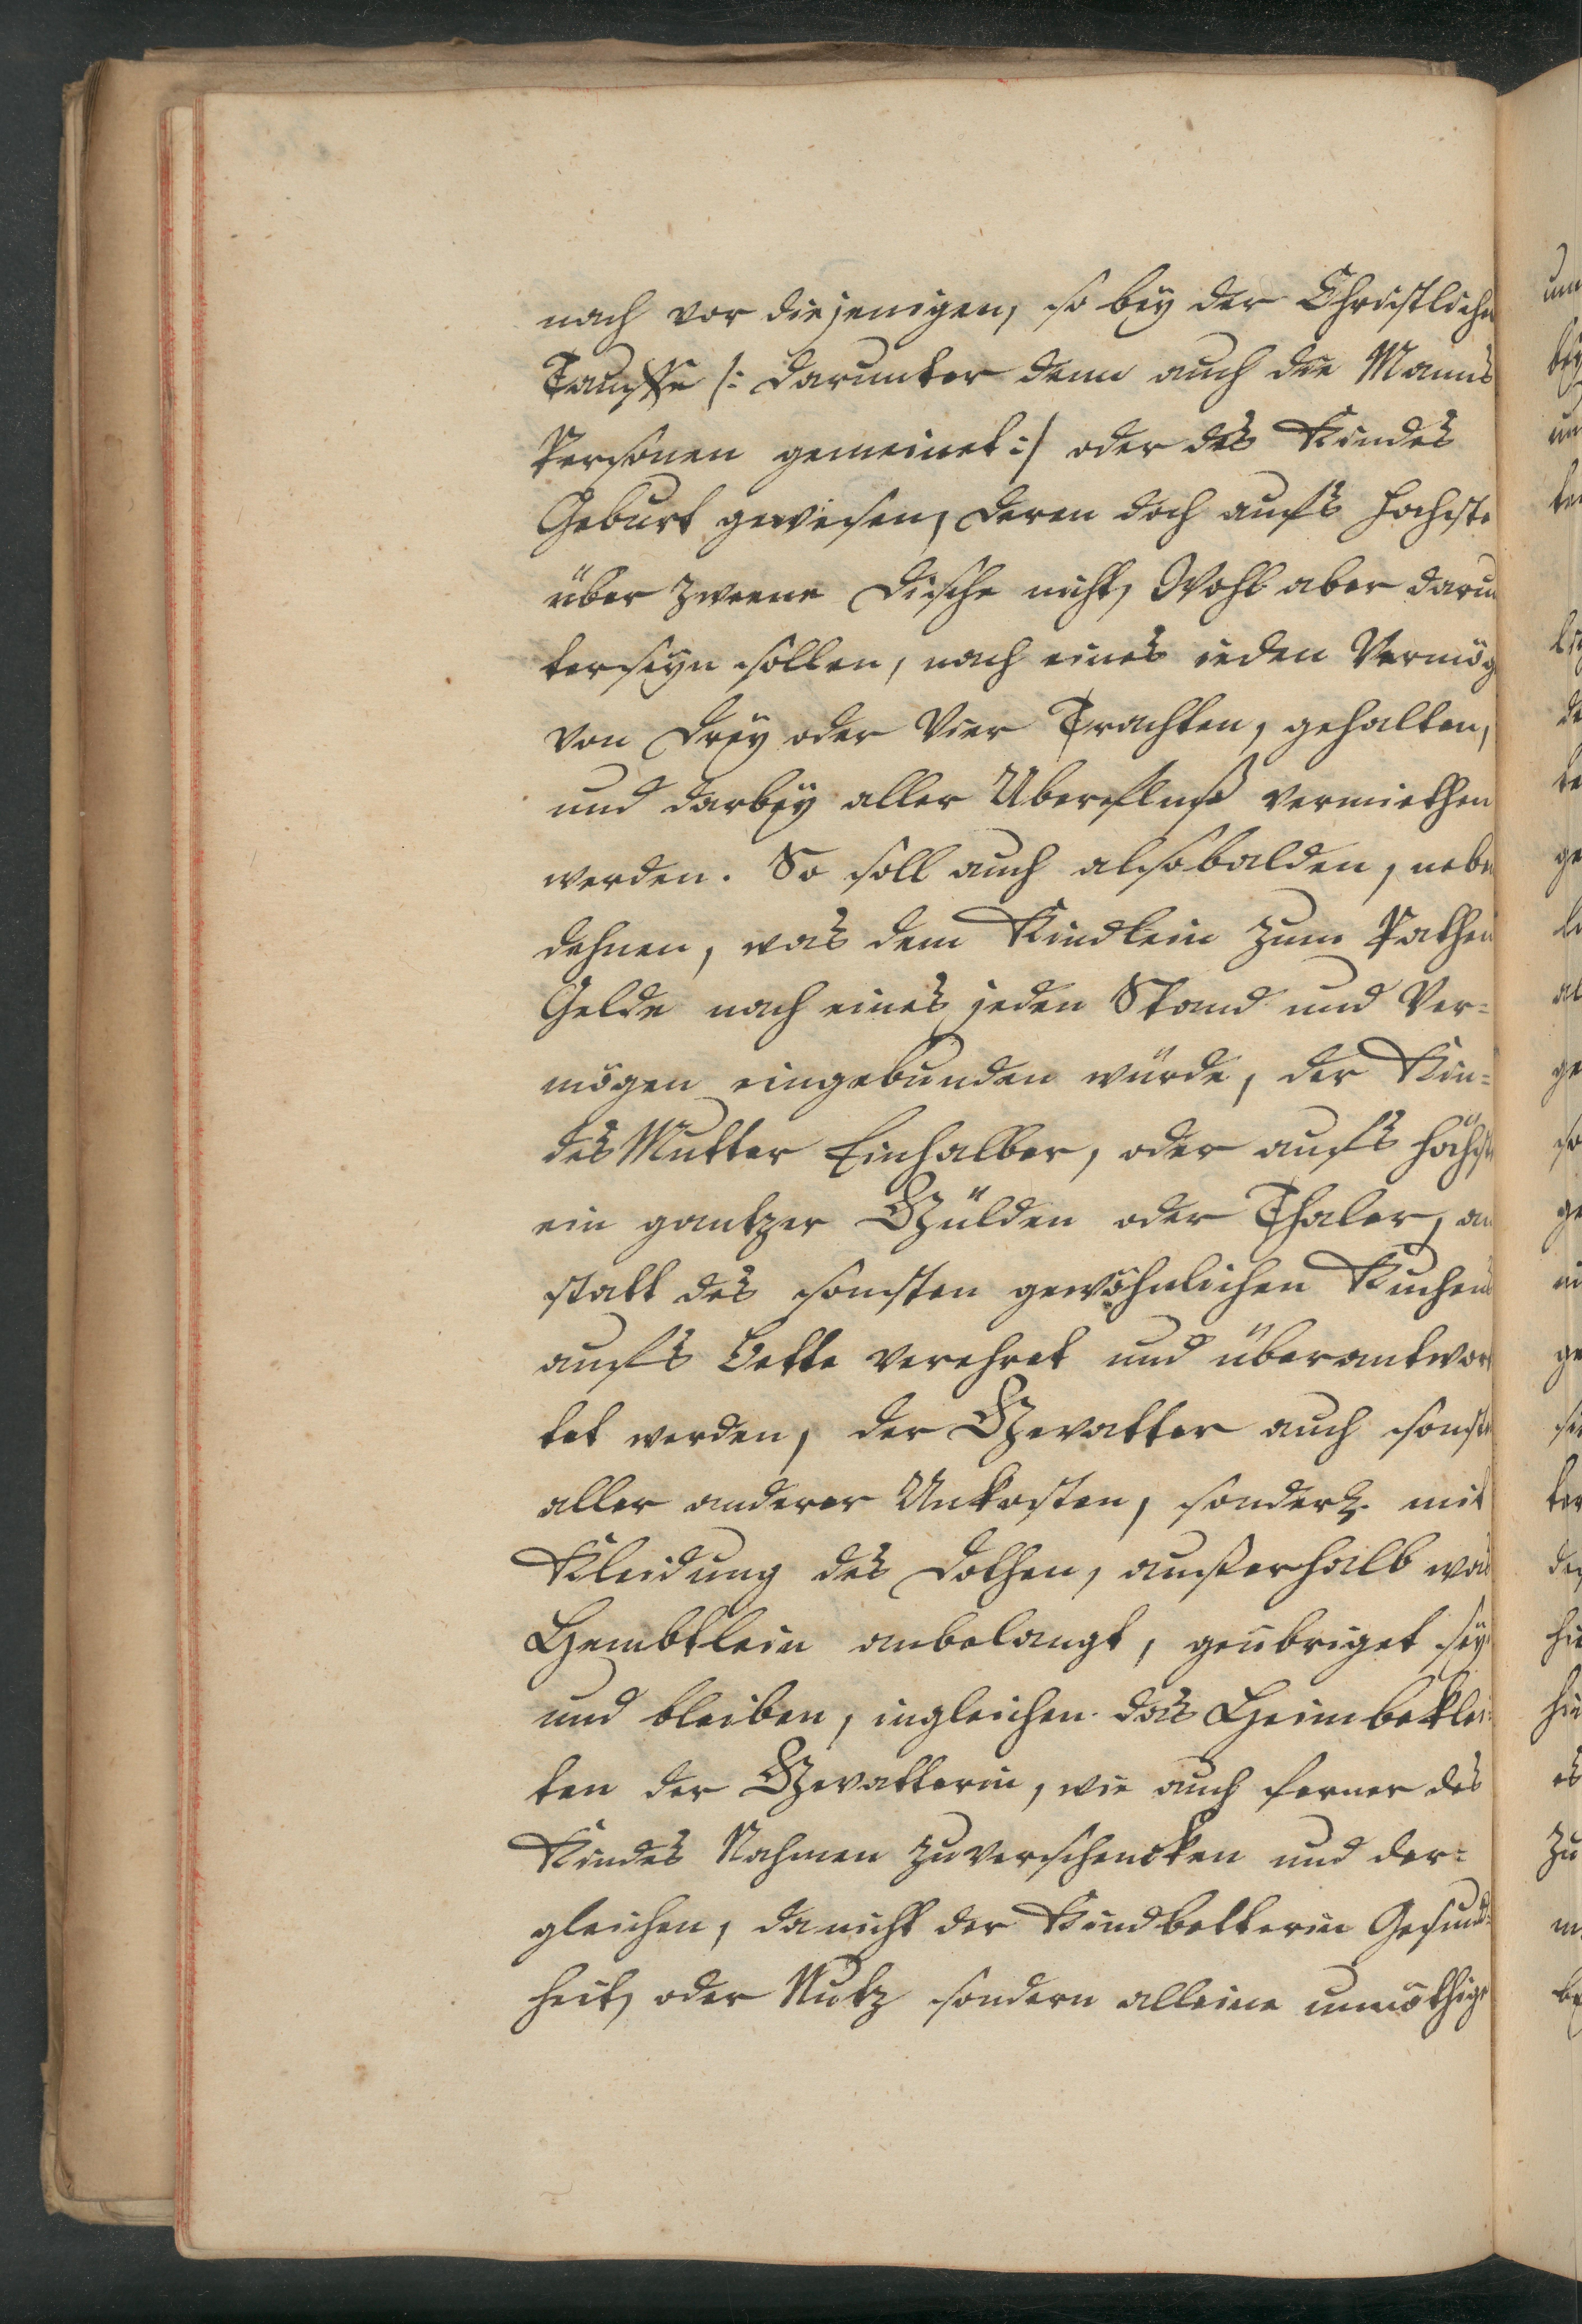 nach vor diejenigen, so bey der Christlichen
Tauffe /: darunter denn auch die Manns
Personen gemeinet :/ oder des Kindes
Geburt gewesen, deren doch aufs hochste
über zweene Dische nicht, Wohl aber darun
ter seyn sollen, nach eines ieden Vermög
von drey oder Vier Trachten, gehalten,
und darbey aller Uberfluß vermiethen
werden. So soll auch alsobalden, neben
dehnen, was dem Kindlein zum Pathen
Gelde nach eines jeden Stand und Ver=
mögen eingebunden würde, der Kin=
des Mutter Einhalber, oder aufs höchste
ein gantzer Gülden oder Thaler, an
statt des sonsten gewöhnlichen Kuchens
aufs Bette verehret und überantwor
tet werden, der Gevatter auch sonsten
aller anderer Unkosten, sonderl. mit
Kleidung des Dothen, außerhalb was
Hembtlein anbelangt, geübriget seyn
und bleiben, ingleichen das Heimbeklei=
ten der Gevatterin, wie auch ferner des
Kindes Nahmen zuverschencken und der=
gleichen, da nicht der Kindbetterin Gesund=
heit, oder Nutz sondern alleine unnöthige